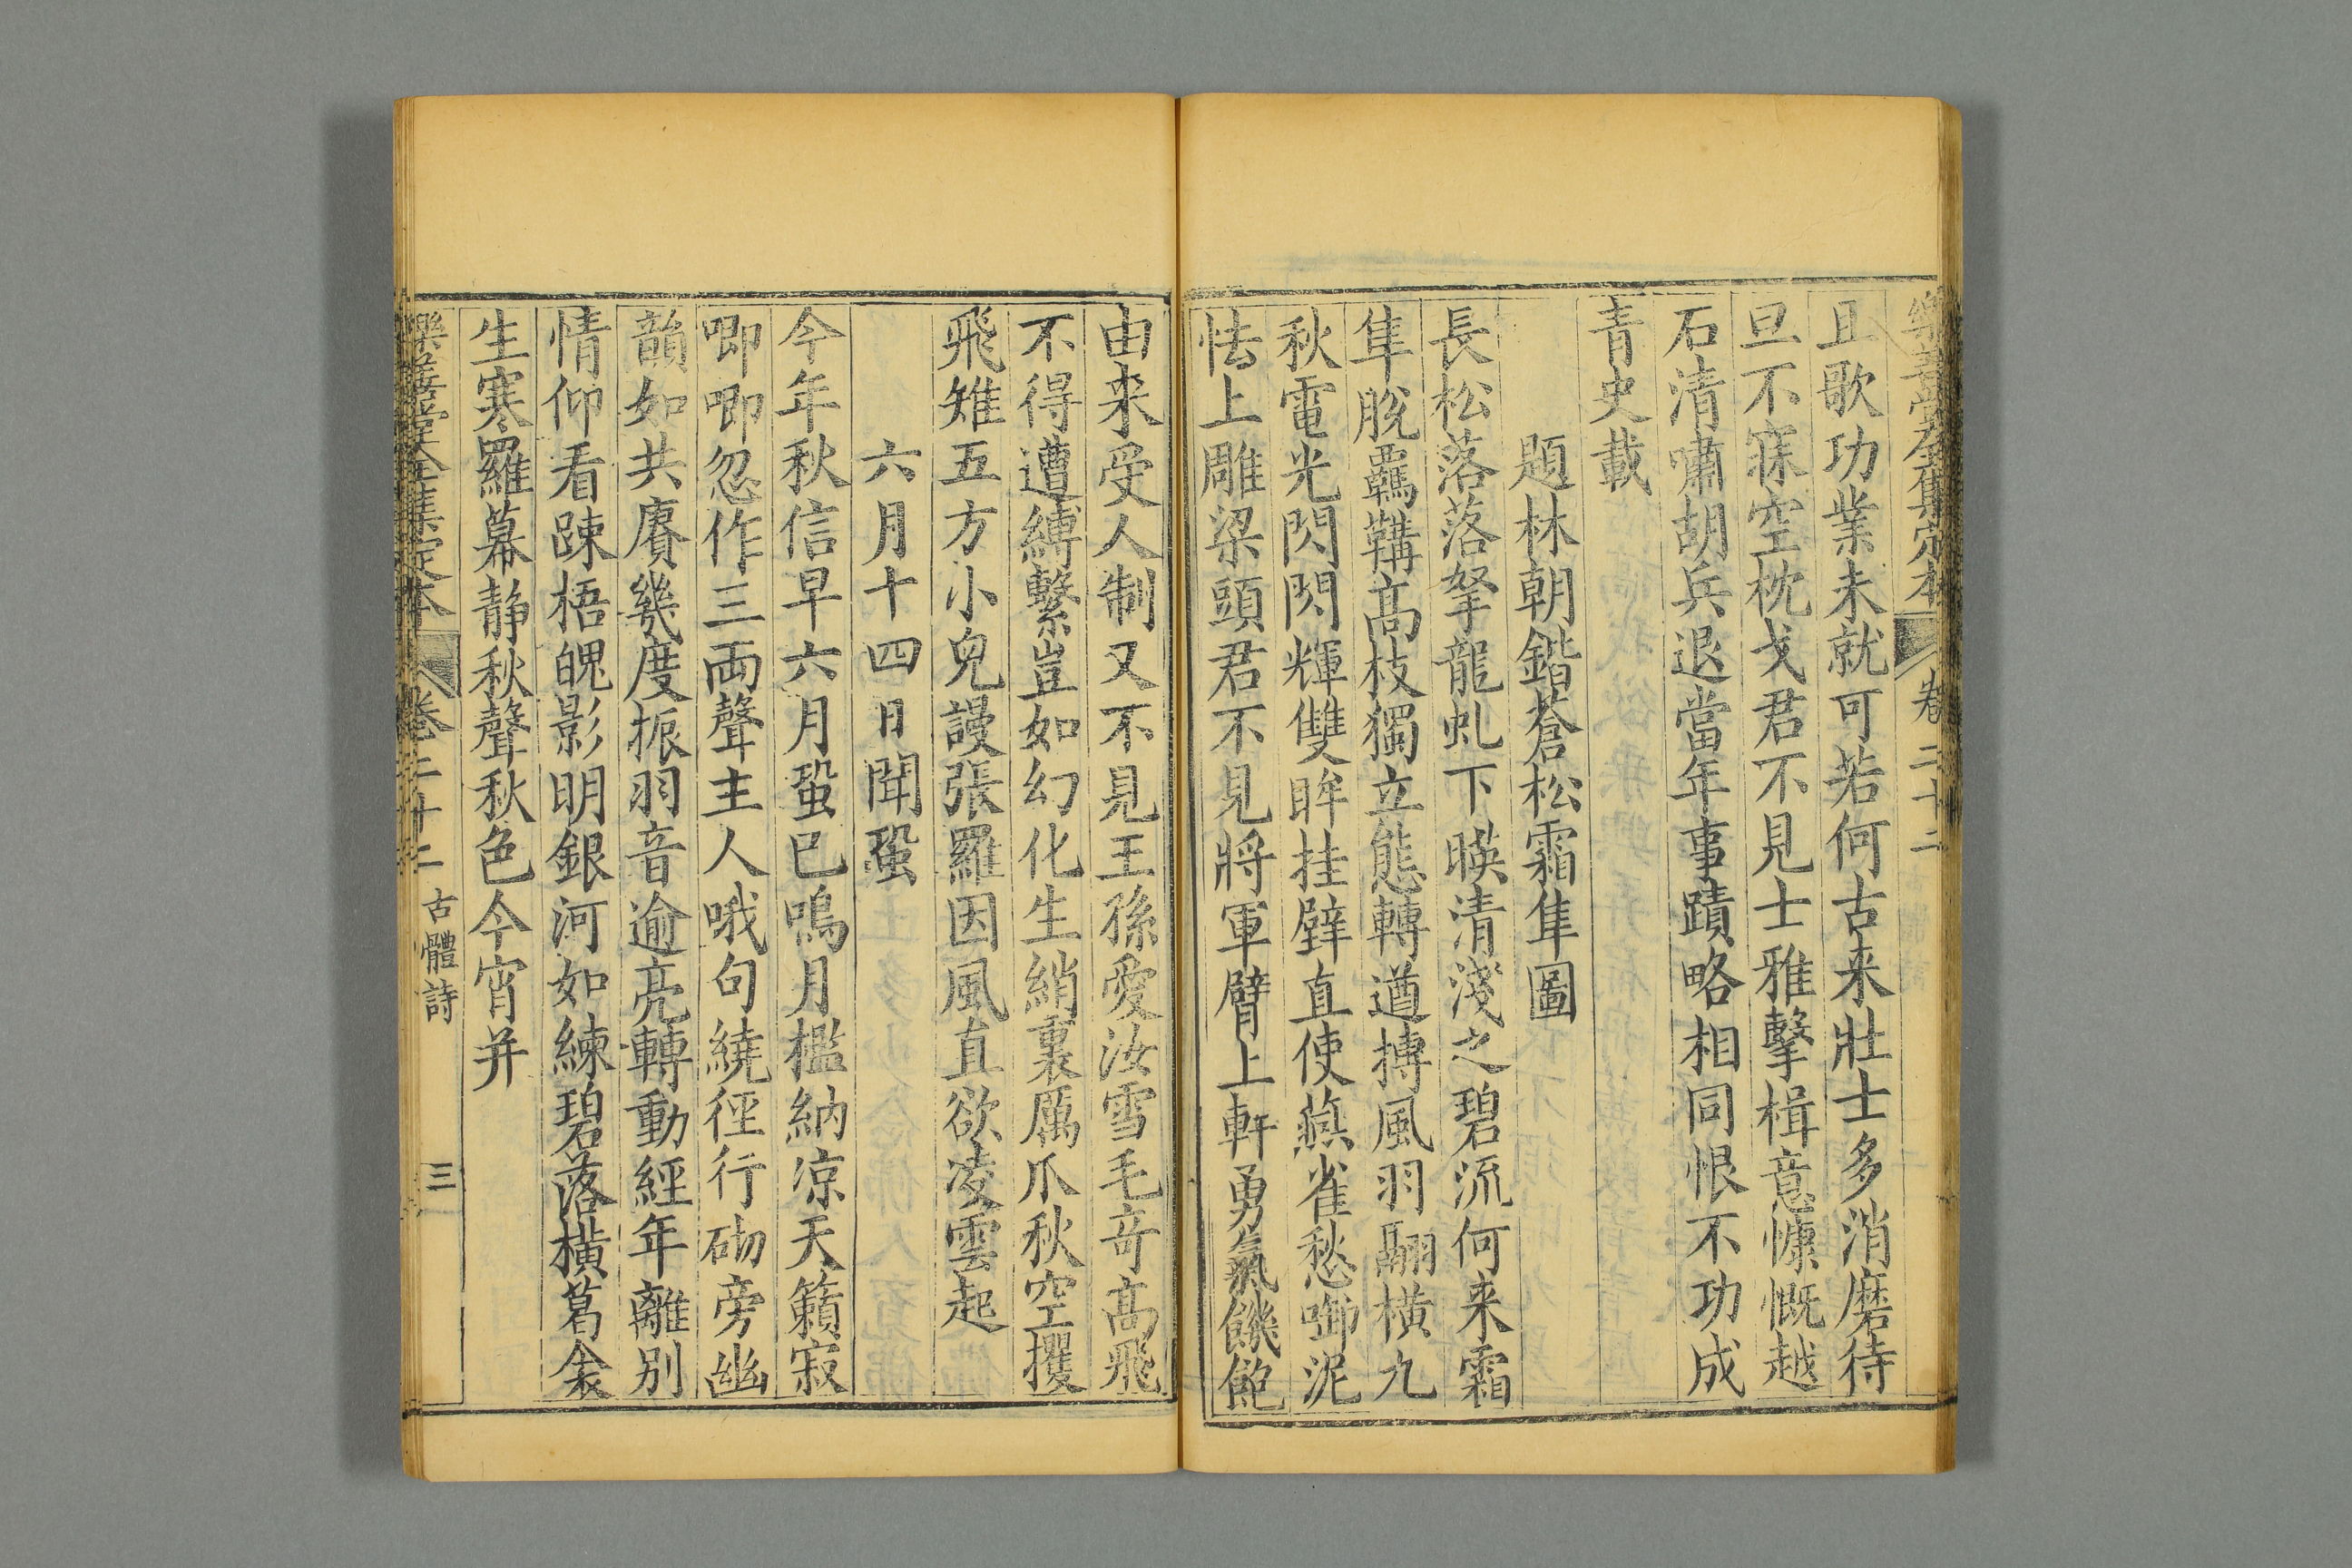 樂善堂全集定本 卷二十二
且歌功業未就可若何古来壯士多消磨待
旦不寐空枕戈君不見士雅擊楫意慷慨越
石清嘯胡兵退當年事蹟略相同恨不功成
青史載
題林朝鍇蒼松霜隼圖
長松落落拏龍虬下暎清淺之碧流何来霜
隼脫羈鞲高枝獨立態轉遒摶風羽翮橫九
秋電光閃閃輝雙眸挂壁直使蓺雀愁啣泥
怯上雕梁頭君不見將軍臂上軒勇氣饑飽
由来受人制又不見王孫愛汝雪毛竒高飛
不得遭縛繫豈如幻化生綃裏厲爪秋空攫
飛雉五方小兒謾張羅因風直欲凌雲起
六月十四日聞蛩
今年秋信早六月蛩已鳴月檻納凉天籟寂
唧唧忽作三兩聲主人哦句繞徑行砌旁幽
韻如共賡幾度振羽音逾亮轉動經年離別
情仰看踈梧魄影明銀河如練碧落橫葛衾
生寒羅幕静秋聲秋色今宵并
樂善堂全集定本 卷二十二 古體詩 三